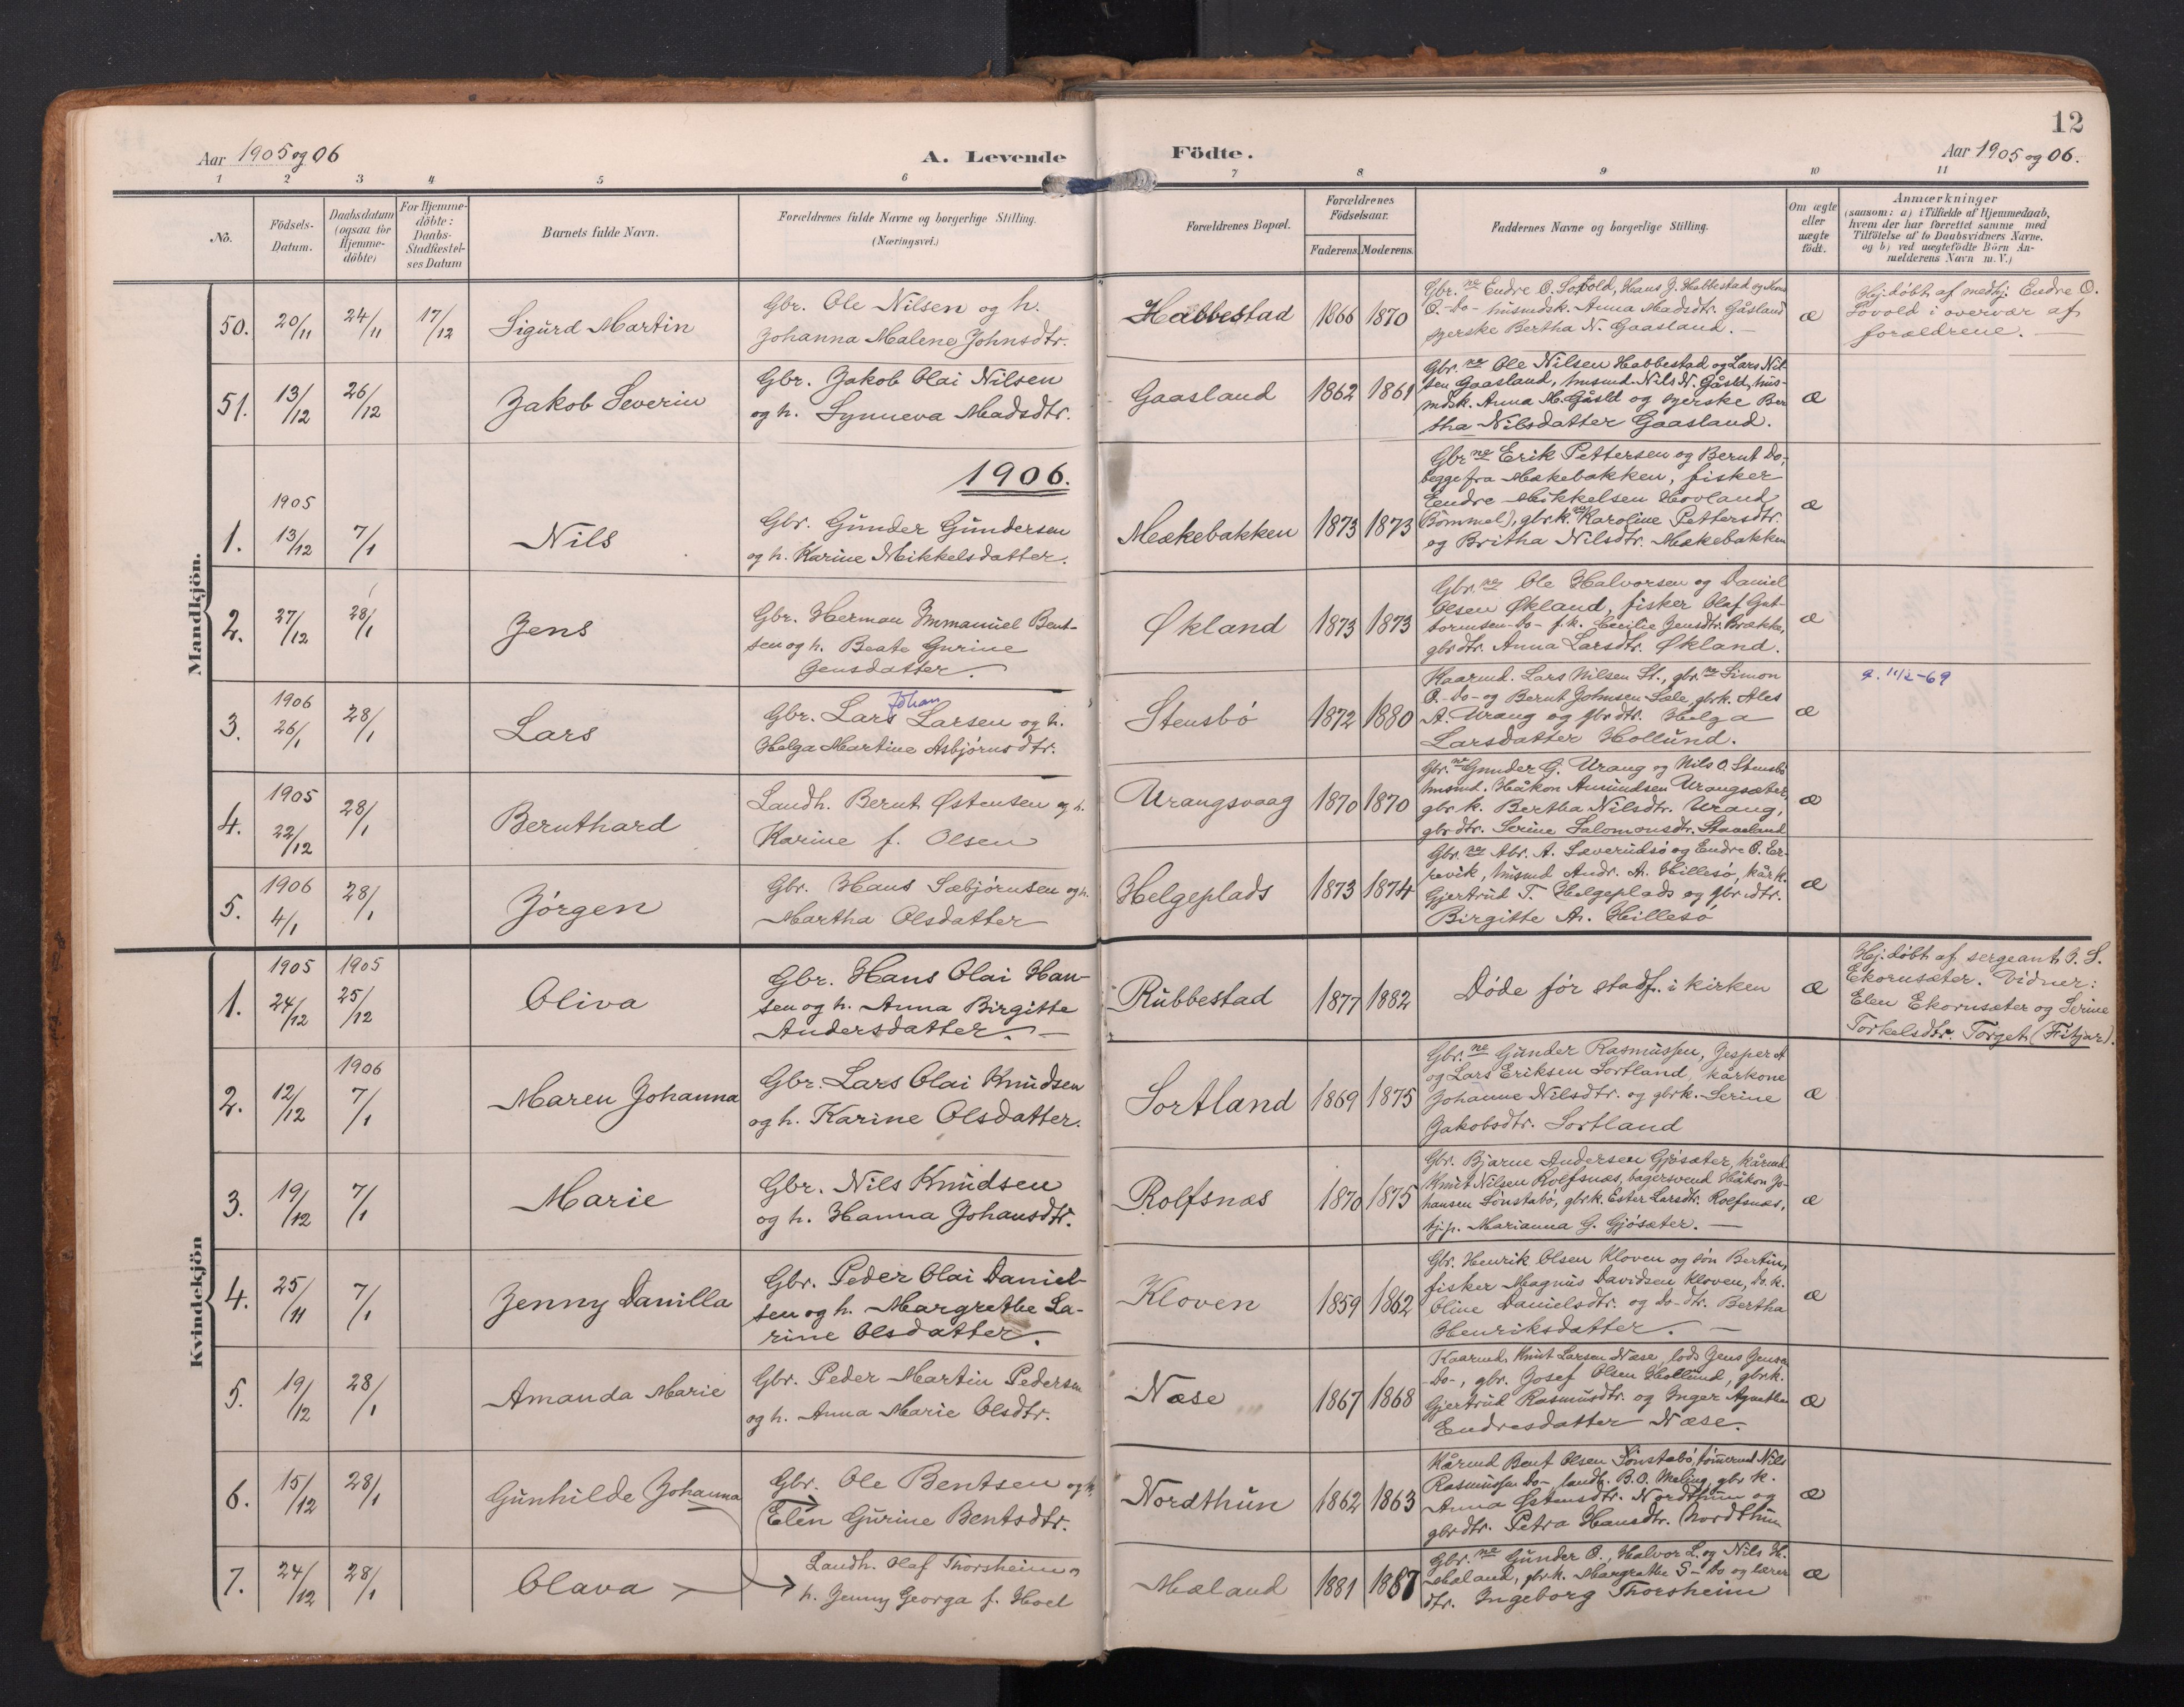 12
Aar 1905 og 06
A. Levende Födte.
Aar 1905 og 06.
1 2 3 4 5 6 7 8 9 10 11
No.
Födsels-
Datum.
Daabsdatum
(ogsaa for
Hjemme-
döbte)
For Hjemme-
döbte:
Daabs-
Stadfæstel-
ses Datum
Barnets fulde Navn.
Forældrenes fulde Navne og borgerlige Stilling.
(Næringsvei.)
Forældrenes Bopæl.
Forældrenes
Födselsaar.
Faderens. Moderens.
Faddernes Navne og borgerlige Stilling.
Om ægte
eller
uægte
födt.
Anmærkninger
(saasom: a) i Tilfælde af Hjemmedaab,
hvem der har forrettet samme med
Tilföielse af to Daabsvidners Navne,
og b) ved uægtefödte Börn An-
melderens Navn m. V.)
Mandkjön.
50. 20/11 24/11 17/12 Sigurd Martin
Gbr. Ole Nilsen og h.
Johanna Malene Johnsdtr.
Habbestad 1866 1870
Gbr.ne Endre O. Sovold, Hans J. Habbestad og
O. -Do- husmdsk. Anna Madsdtr. Gåsland
syerske Bertha N. Gaasland. -
æ
Hj.døbt af medhj. Endre O.
Sovold i overvær af
forældrene. -
51. 13/12 26/12 Jakob Severin
Gbr. Jakob Olai Nilsen
og h. Synneva Madsdtr.
Gaasland 1862 1861
Gbr.ne Ole Nilsen Habbestad og Lars Nil-
sen Gaasland, husmd. Nils N. Gåsld, hus-
mdsk. Anna M. Gåsld og syerske Ber
tha Nilsdatter Gaasland.
æ
1906.
1. 1905 13/12 7/1 Nils
Gbr. Gunder Gundersen
og h. Karine Mikkelsdatter.
Mækebakken 1873 1873
Gbr.ne Erik Pettersen og Bernt Do,
begge fra Mækebakken, fisker
Endre Mikkelsen Hovland
(Bømmel), gbrk.ne Karoline Pettersdtr.
og Britha Nilsdtr. Mækebakken
æ
2. 27/12 28/1 Jens
Gbr. Herman Immanuel Bent-
sen og h. Beate Gurine
Jensdatter.
Økland 1873 1873
Gbr.ne Ole Halvorsen og Daniel
Olsen Økland, fisker Olaf Gut-
tormsen -Do- f.k. Cecilie Jensdtr. Brække,
gbrdtr. Anna Larsdtr. Økland.
æ
3. 1906 26/1 28/1 Lars
Johan
Gbr. Lars Larsen og h.
Helga Martine Asbjørnsdtr.
Stensbö 1872 1880
Kaarmd. Lars Nilsen St., gbr.ne Simon
O. -Do- og Bernt Johnsen Sele, gbrk. Ales
A. Urang og gbrdtr. Helga
Larsdatter Hollund.
æ
11/2-69
4. 1905 22/12 28/1 Bernthard
Landh. Bernt Østensen og h.
Karine f. Olsen
Urangsvaag 1870 1870
Gbr.ne Gunder G. Urang og Nils O. Stensbö
husmd. Håkon Amundsen Urangsæter,
gbrk. Bertha Nilsdtr. Urang,
gbrdtr. Serine Salomonsdtr. Staveland
æ
5. 1906 4/1 28/1 Jørgen
Gbr. Hans Sæbjørnsen og h.
Martha Olsdatter
Helgeplads 1873 1874
Gbr.ne Abr. A. Sæverudsø og Endre O.
revik, husmd Andr. A. Hillesø, kårk.
Gjertrud T. Helgeplads og gbrdtr.
Birgitte A. Hillesø
æ
Kvindekjön
1. 1905 24/12 1905 25/12 Oliva
Gbr. Hans Olai Han-
sen og h. Anna Birgitte
Andersdatter. -
Rubbestad 1877 1882
Døde før stadf. i kirken
æ
Hj.døbt af sergeant O. S.
Ekornsæter. Vidner:
Elen Ekornsæter og Serine
Torkelsdtr. Torget (Fitjar).
2. 12/12 1906 7/1 Maren Johanna
Gbr. Lars Olai Knudsen
og h. Karine Olsdatter.
Sortland 1869 1875
Gbr.ne Gunder Rasmussen, Jesper A
og Lars Eriksen Sortland, kårkone
Johanne Nilsdtr. og gbrk. Serine
Jakobsdtr. Sortland
æ
3. 19/12 7/1 Marie
Gbr. Nils Knudsen
og h. Hanna Johansdtr.
Rolfsnæs 1870 1875
Gbr. Bjarne Andersen Gjøsæter, kårmd.
Knut Nilsen Rolfsnæs, bagersvend Håkon Jo-
hansen Sönstabö, gbrk. Ester Larsdtr. Rolfsnæs,
tjp. Marianna G. Gjøsæter. -
æ
4. 25/11 7/1 Jenny Danilla
Gbr. Peder Olai Daniel-
sen og h. Margrethe La-
rine Olsdatter.
Kloven 1859 1862
Gbr. Henrik Olsen Kloven og søn Bertin,
fisker Magnus Davidsen Kloven, Do. k.
Oline Danielsdtr. og Do-dtr. Bertha
Henriksdatter. -
æ
5. 19/12 28/1 Amanda Marie
Gbr. Peder Martin Pedersen
og h. Anna Marie Olsdtr.
Næse 1867 1868
Kaarmd. Knut Larsen Næse, lods Jens Jensen
-Do-, gbr. Josef Olsen Hollund, gbrk.
Gjertrud Rasmusdtr. og Inger Agnethe
Endresdatter Næse.
æ
6. 15/12 28/1 Gunhilde Johanna
Gbr. Ole Bentsen og h.
Elen Gurine Bentsdtr.
Nordthun 1862 1863
Kårmd Bent Olsen Sönstabö, tømrmd Nils
Rasmussen Do-, landh. B. O. Meling, gbrk.
Anna Østensdtr. Nordthun og
gbrdtr. Petra Hansdtr. Nordthun
æ
7. 24/12 28/1 Olava
Landh. Olaf Thorsheim og
h. Jenny Georga f. Hoel
Mæland 1881 1887
Gbr.ne Gunder O., Halvor L. og Nils H.
Mæland, gbrk. Margrethe S- Do og lærer
dtr. Ingeborg Thorsheim
æ